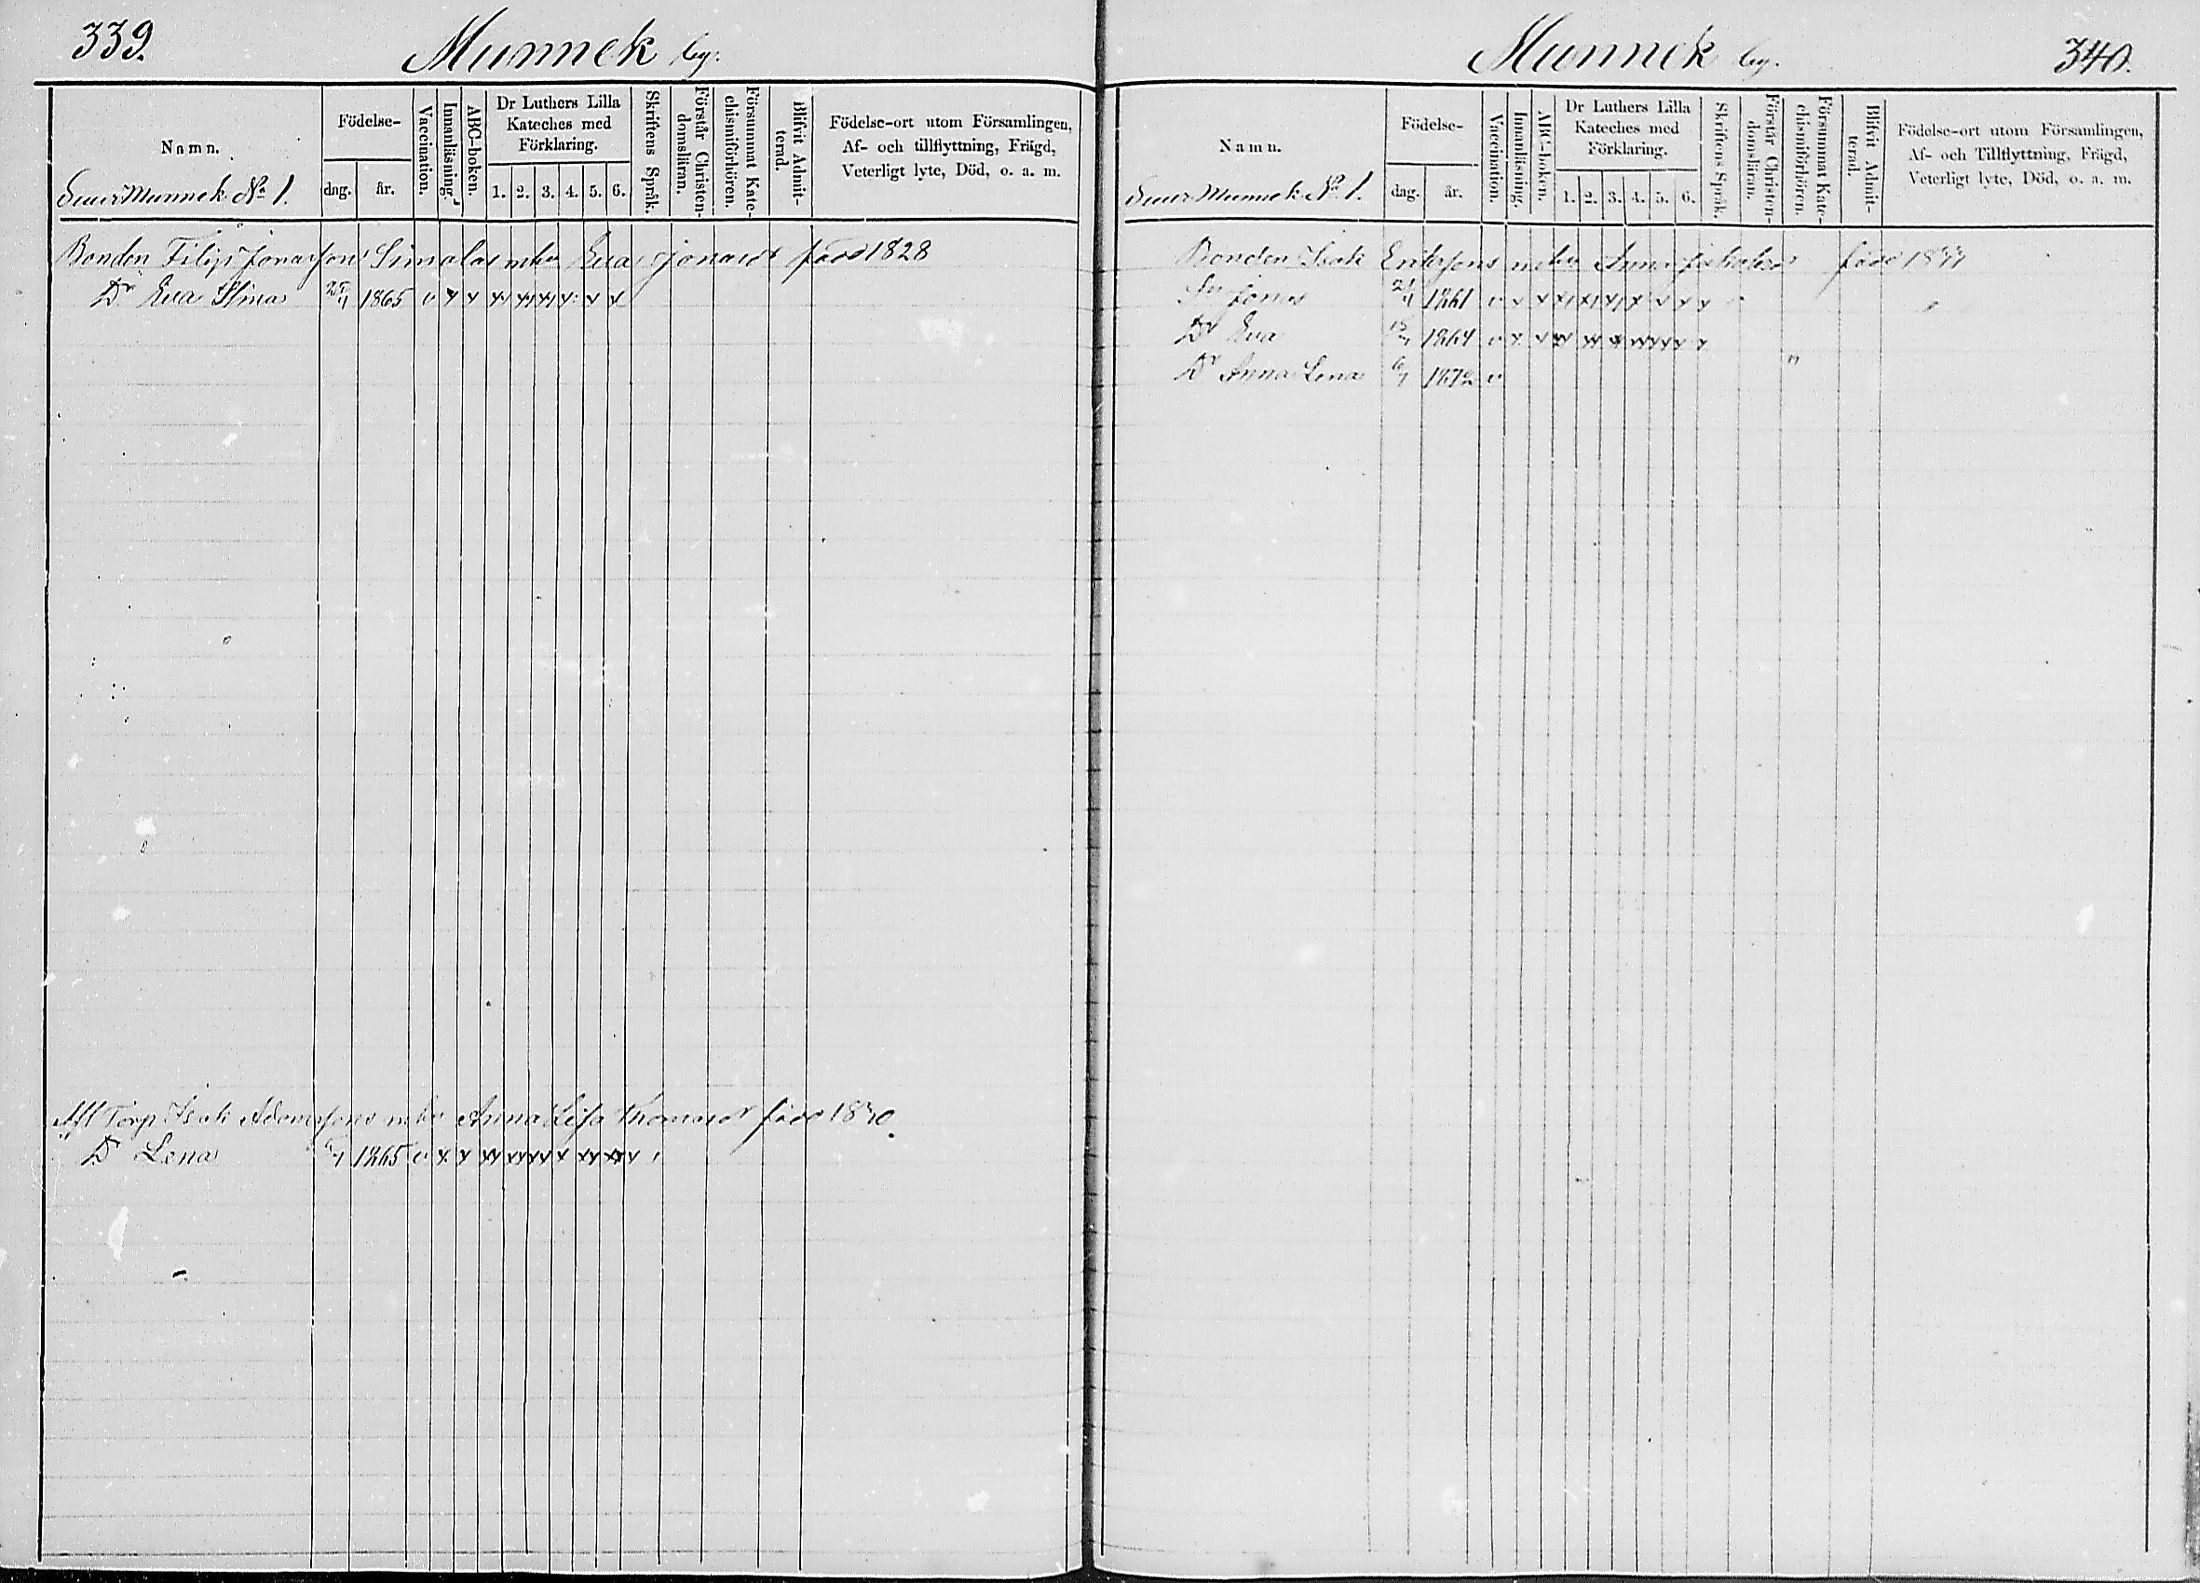 339.
Munnek by.
Namn.
Födelse-
dag.
år.
Vaccination.
Innanläsning.
ABC-boken.
Dr Luthers Lilla
Kateches med
Förklaring.
1. 2. 3. 4. 5. 6.
Skriftens Språk.
Förstår Christen-
domsläran.
Försummat Kate-
chismiförhören.
Blifvit Admit-
terad.
Födelse-ort utom Församlingen,
Af- och tillflyttning, Frägd,
Veterligt lyte, Död, o. a. m.
Munnek No 1.
Bonden Filip Jonasson Simolas Eva Jonasdr född 1828
Dr Eva Stina 25/4 1865 v x x x x x x x x
Afl Torp Isak Adamssons Anna Lisa Thomasdr född 1830.
Dr Lena 1865 v x x xx xx xx x xx xx x
340.
Munnek by.
Namn.
Födelse-
dag.
år.
Vaccination.
Innanläsning.
ABC-boken.
Dr Luthers Lilla
Kateches med
Förklaring.
1. 2. 3. 4. 5. 6.
Skriftens Språk.
Förstår Christen-
domsläran.
Försummat Kate-
chismiförhören.
Blifvit Admit-
terad.
Födelse-ort utom Församlingen,
Af- och Tillflyttning, Frägd,
Veterligt lyte, Död, o. a. m.
Munnek No 1.
Bonden Isak Erikssons Anna född
Sn Jonas 1861 v x x x x x x x x x
Dr Eva 1864 v x x xx xx x xx xx x x
Dr Anna Lena 1872 v